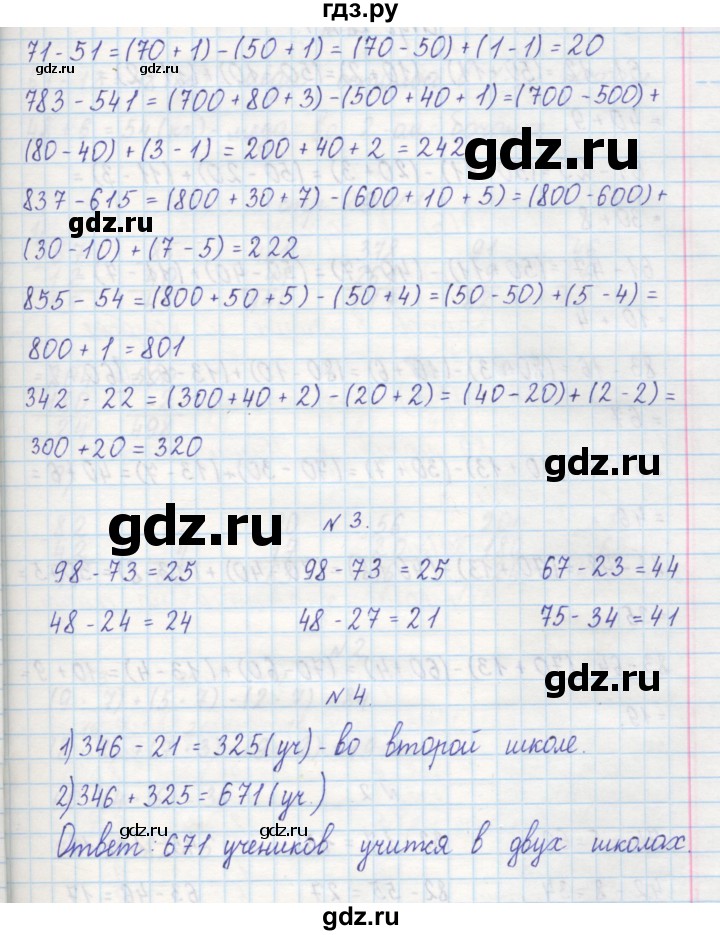 гдз.ру
71 - 51 = (70 + 1) - (50 + 1) = (70 - 50) + (1 - 1) = 20
783 - 541 = (700 + 80 + 3) - (500 + 40 + 1) = (700 - 500) +
(80 - 40) + (3 - 1) = 200 + 40 + 2 = 242
gdz.ru
837 - 615 = (800 + 30 + 7) - (600 + 10 + 5) = (800 - 600) +
gdz.ru
(30 - 10) + (7 - 5) = 222
855 - 54 = (800 + 50 + 5) - (50 + 4) = (50 - 50) + (5 - 4) =
800 + 1 = 801
342 - 22 = (300 + 40 + 2) - (20 + 2) = (40 - 20) + (2 - 2) =
300 + 20 = 320
gdz.ru
gdz.ru
№ 3.
98 - 73 = 25 98 - 73 = 25 67 - 23 = 44
48 - 24 = 24 48 - 27 = 21 75 - 34 = 41
gdz.ru
№ 4.
1) 346 - 21 = 325 (уч) - во второй школе.
2) 346 + 325 = 671 (уч.)
gdz.ru gdz.ru gdz.ru gdz.ru
Ответ: 671 учеников учится в двух школах.
gdz.ru